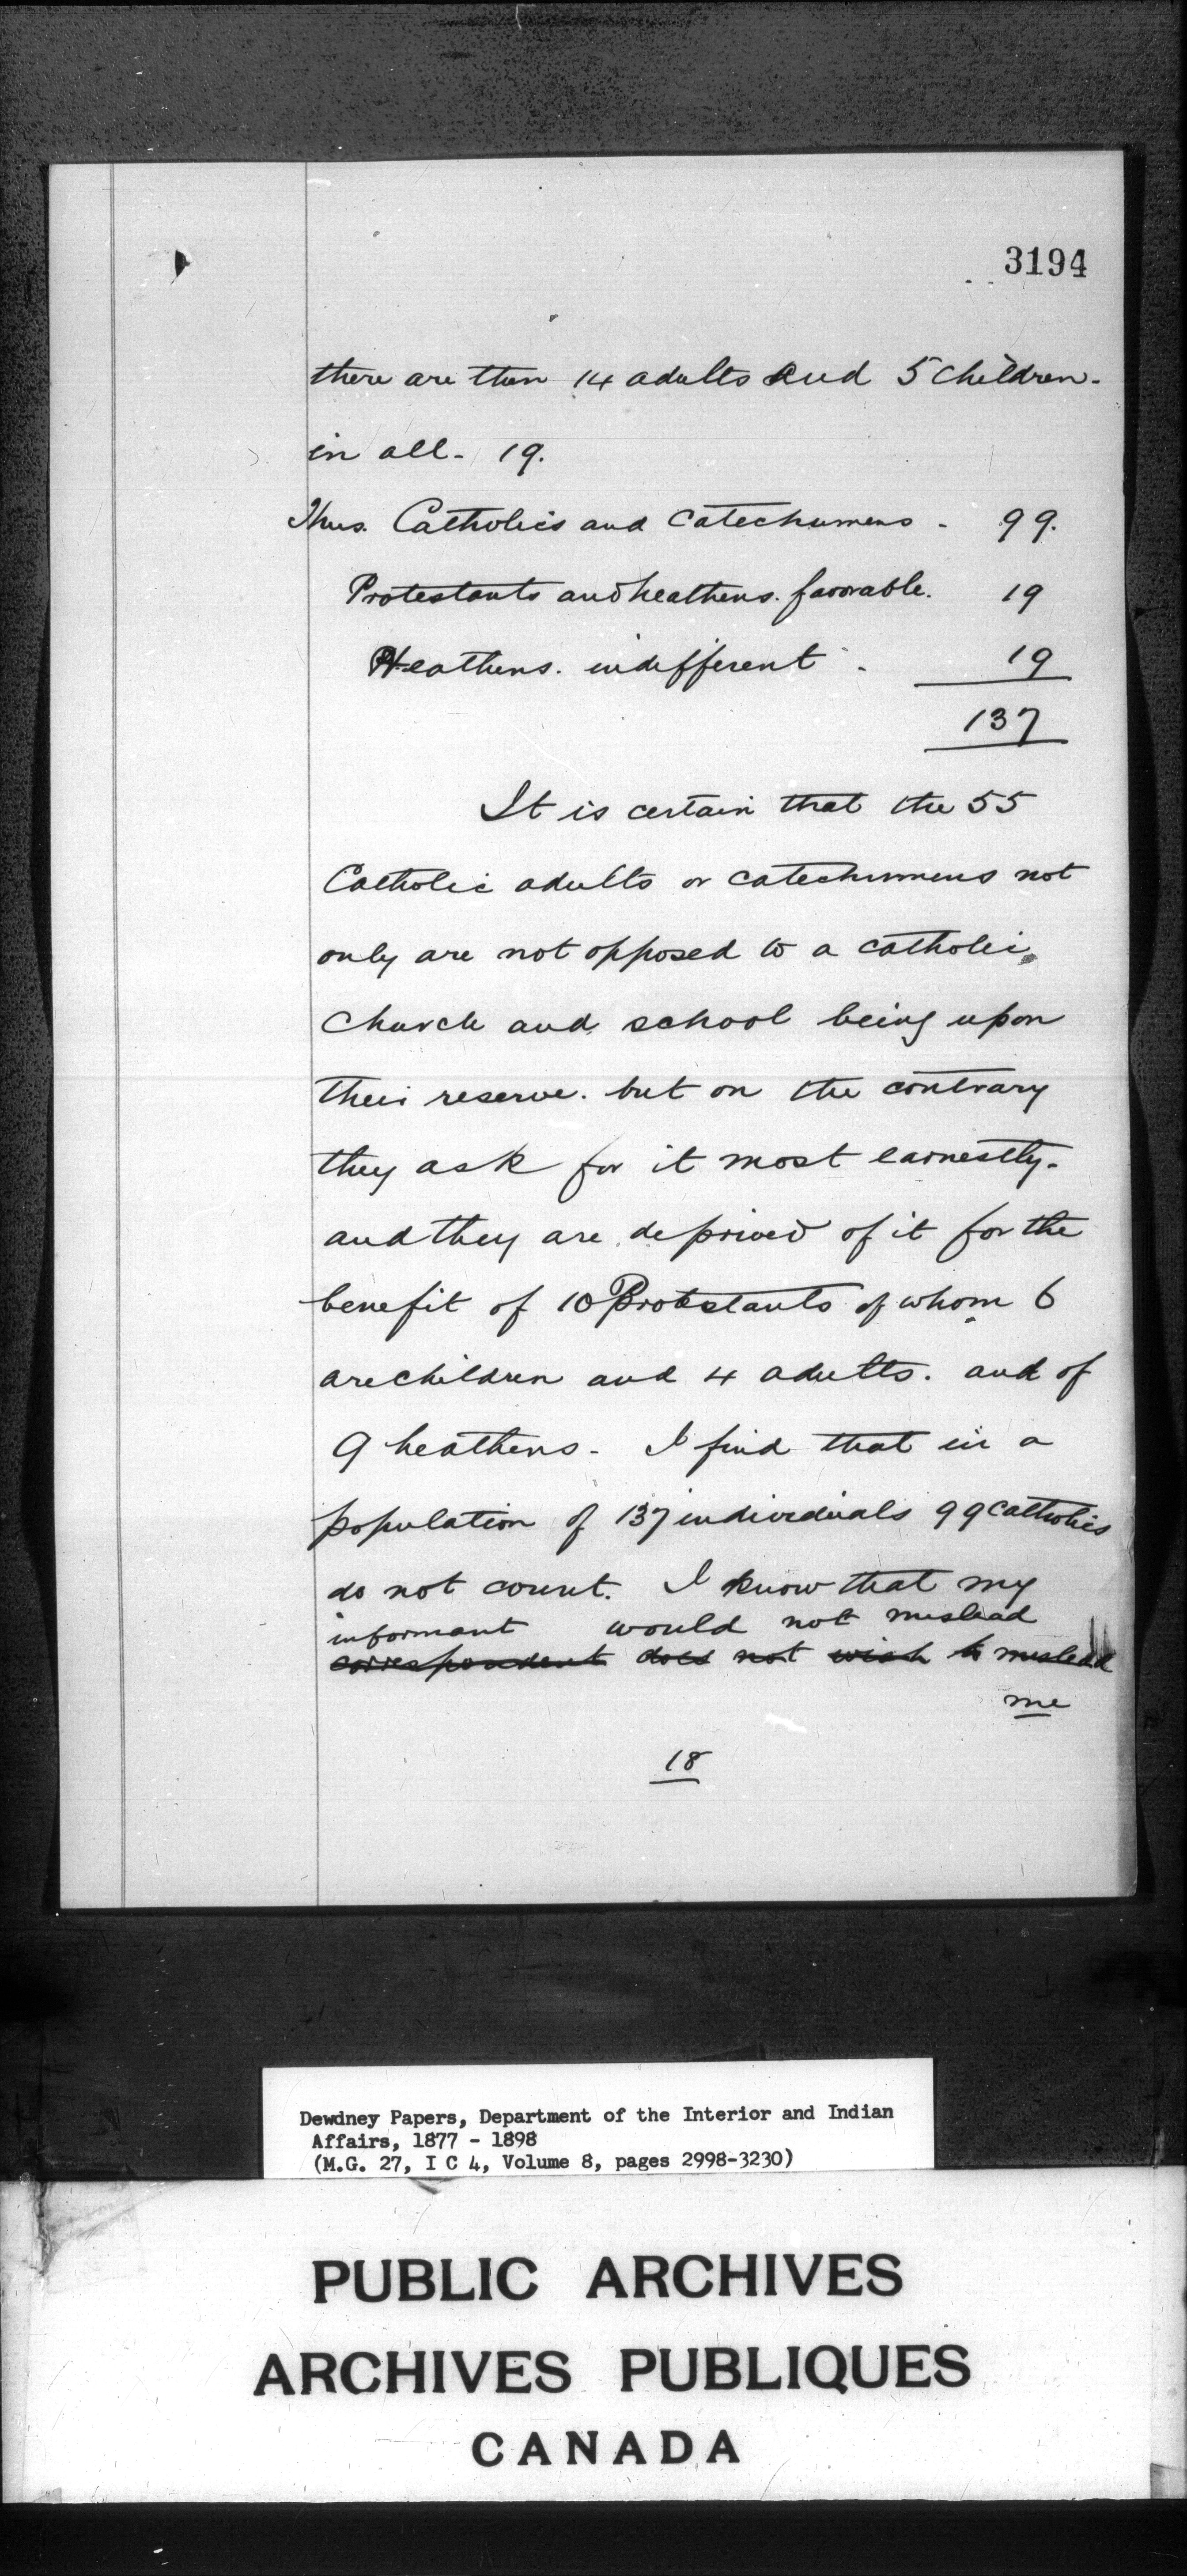 3194
there are then 14 adults and 5 children.
in all - 19.
Thus. Catholics and Catechumens - 99.
Protestants and heathens. favorable. 19
Heathens. indifferent - 19
137
It is certain that the 55
Catholic adults or catechumens not
only are not opposed to a catholic
church and school being upon
their reserve. but on the contrary
they ask for it most earnestly.
and they are deprived of it for the
benefit of 10 Protestants of whom 6
are children and 4 adults. and of
9 heathens - I find that in a
population of 137 individuals 99 catholics
do not count. I know that my
informant would not mislead
correspondent does not wish to mislead
me
18
Dewdney Papers, Department of the Interior and Indian
Affairs, 1877 - 1898
(M.G. 27, I C 4, Volume 8, pages 2998-3230)
PUBLIC ARCHIVES
ARCHIVES PUBLIQUES
CANADA